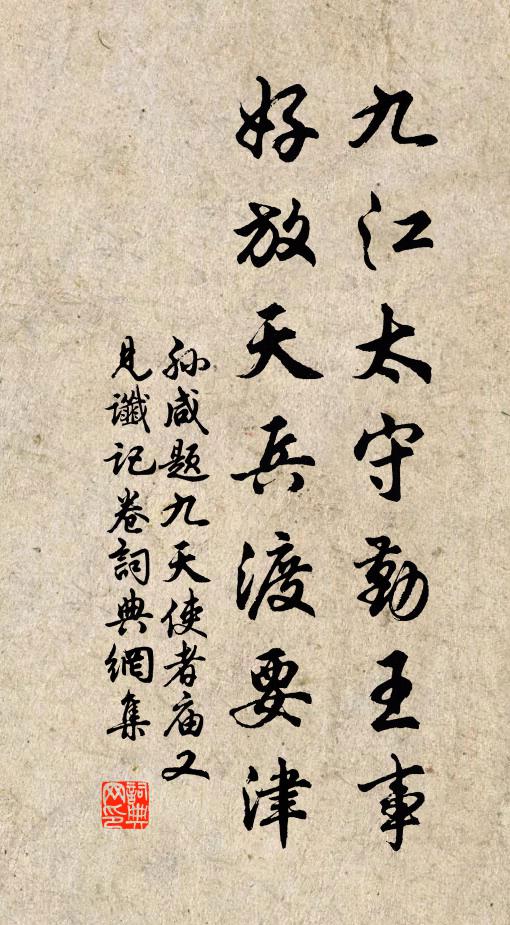 九江太守勤王事
好放天兵渡要津
孙咸题九天使者庙又
见谶记卷詞典網集
詞典网印